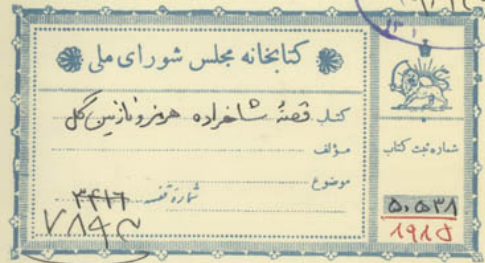 کتابخانه مجلس شورای ملی
کتاب قصهٔ شاهزاده هرمز و نازنین گل
مؤلف
موضوع
شماره قفسه ۳۴۱۶
۷۸۹۲
شماره ثبت کتاب
۵۰۵۳۸